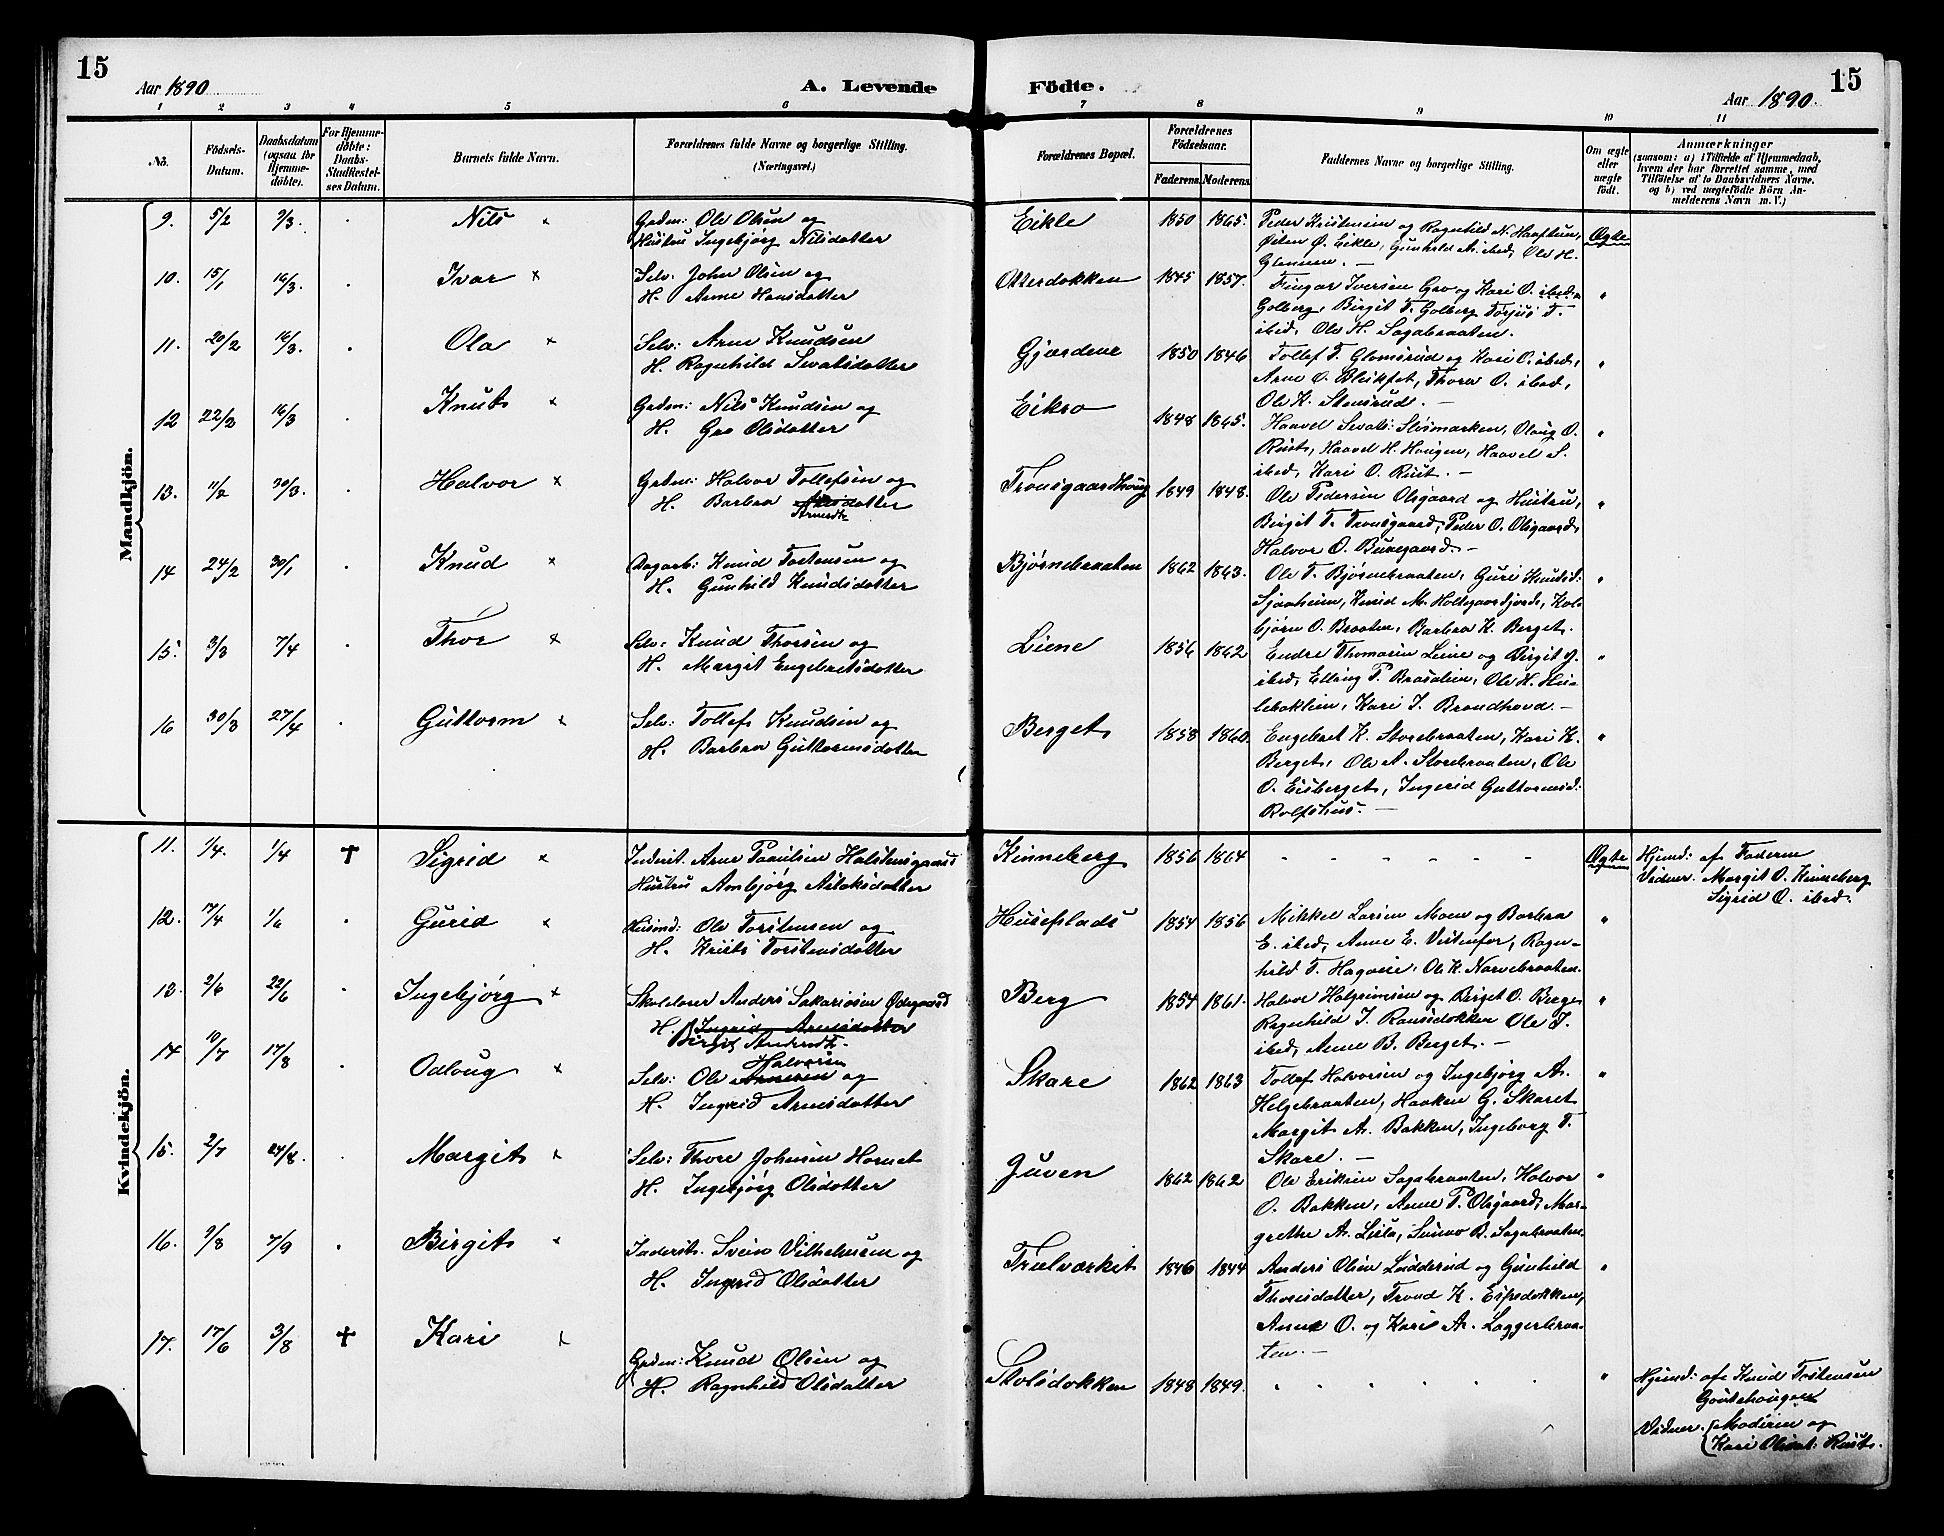 15
Aar 1890
A. Levende
Födte.
Aar 1890.
15
1 2 3 4 5 6 7 8 9 10 11
No.
Födsels-
Datum.
Daabsdatum
(ogsaa for
Hjemme-
döbte).
For Hjemme-
döbte:
Daabs-
Stadfæstel-
ses Datum.
Barnets fulde Navn.
Forældrenes fulde Navne og borgerlige Stilling.
(Næringsvei.)
Forældrenes Bopæl.
Forældrenes
Födselsaar.
Faderens. Moderens.
Faddernes Navne og borgerlige Stilling.
Om ægte
eller
uægte
födt.
Anmærkninger
(saasom: a) i Tilfælde af Hjemmedaab,
hvem der har forrettet samme, med
Tilföielse af to Daabsvidners Navne,
og b) ved uægtefödte Börn An-
melderens Navn m. V.)
Mandkjön.
9. 5/2 9/3. Nils × Grdm: Ole Olsen og
Hustru Ingebjørg Nilsdatter
Eikle 1850 1865. Peder Kristensen og Ragnhild N. Haaftun,
Østen Ø. Eikle, Gunhild A. ibed, Ole H.
Glensen. — Ægte
10. 15/1 16/3. Ivar × Selv: John Olsen og
H. Anne Hansdatter
Otterdokken 1845 1857. Fingar Iversen Gro og Kari O. ibed
Golberg, Birgit T. Golberg Torjus T.
ibed, Ole H. Sagabraaten. "
11. 20/2 16/3. Ola × Selv: Arne Knudsen
H. Ragnhild Sevatsdatter
Gjærdene 1850 1846 Tollef T. Glomsrud og Kari O. ibed,
Arne O. Blikfet, Thora O. ibed,
Ole K. Stensrud. — "
12 22/2 16/3 Knut × Grdm: Nils Knudsen og
H. Gro Olsdatter
Eikro 1848 1865. Haavel Sevats: Slismarken, Olaug O.
Rust, Haavel H. Haugen, Haavel S.
ibed, Kari O. Rust. — "
13. 11/2 30/3. Halvor × Grdm: Halvor Tollefsen og
H. Barbra Olsdatter
Arnesdtr
Tronsgaardhaug 1849 1848. Ole Pedersen Olsgaard og Hustru,
Birgit T. Tronsgaard, Peder O. Olsgaard,
Halvor O. Bunegaard. — "
14 24/2 30/1 Knud × Dagarb: Knud Tostensen og
H. Gunhild Knudsdatter
Bjørnebraaten 1862 1863. Ole T. Bjørnebraaten, Guri Knutsd.
Sjaaheim, Knud M. Holtegaardjorde, Kol-
bjørn O. Braaten, Barbra K. Berget. "
15. 3/3 7/4 Thor × Selv: Knud Thorsen og
H. Margit Engebretsdatter
Liene 1856 1862 Endre Thomasen Leine og Birgit O.
ibed, Elling P. Brosalien, Ole H. Hus-
lebaklien, Kari I. Brandhovd. — "
16 30/3 27/4 Guttorm × Selv: Tollef Knudsen og
H. Barbra Guttormsdatter
Berget 1858 1860. Engebret K. Storebraaten, Kari K.
Berget, Ole A. Storebraaten, Ole
O. Eisberget, Ingerid Guttormsd:
Rolfshus. — "
Kvindekjön.
11. 1/4. 1/4 † Sigrid × Inderst. Arne Paaulsen Halstensgaard
Hustru Ambjørg Aslaksdatter
Kinneberg 1856 1864 " " " " " " Ægte Hjemd: af Faderen
Vidner. Margit O. Kinneberg
Sigrid O. ibed.
12. 7/4 1/6 Gurid × Husmd: Ole Torstensen og
H. Kristi Torstensdatter
Huseplads 1854 1856 Mikkel Larsen Moen og Barbra
E. ibed, Anne E. Vestenfor, Ragn-
hild T. Hagaeie, Ole K. Narvebraaten. "
13. 2/6 22/6 Ingebjørg × Skolelærer Anders Sakariasen Ødegaard
H. Ingrid Arnesdatter
Birgit Andersdtr.
Berg 1854 1861. Halvor Halgrimsen og Birget O. Berge
Ragnhild I. Ransedokken Ole I.
ibed, Anne B. Berget. — "
14 10/7 17/8 Odloug × Selv: Ole Arnesen og
Halvorsen
H. Ingrid Arnesdatter
Skare 1862 1863 Tollef Halvorsen og Ingebjørg A.
Helgebraaten, Haaken G. Skaret
Margit A. Bakken, Ingeborg T.
Skare. — "
15. 2/7 24/8. Margit × Selv: Thore Johnsen Hornet
H. Ingebjørg Olsdatter
Juven 1862 1862 Ole Eriksen Sagabraaten, Halvor
O. Bakken, Anne P. Olsgaard, Mar-
grethe A. Lisla, Sunnv B. Sagabraaten. "
16. 9/8 7/9 Birgit × Inderst. Svein Vilhelmsen og
H. Ingrid Olsdatter
Trælværket 1846 1844 Anders Olsen Lødderud og Gunhild
Thoresdatter, Trond K. Espedokken,
Anne O. og Kari A. Laggerbraa-
ten. — "
17. 17/6 3/8 † Kari × Grdm: Knud Olsen og
H. Ragnhild Olsdatter
Stolsdokken 1848 1849. " " " " " " " Hjemd: af Knud Tostensen
Goutehaugen
Vidner. (Moderen og
(Kari Olsdat: Rust.